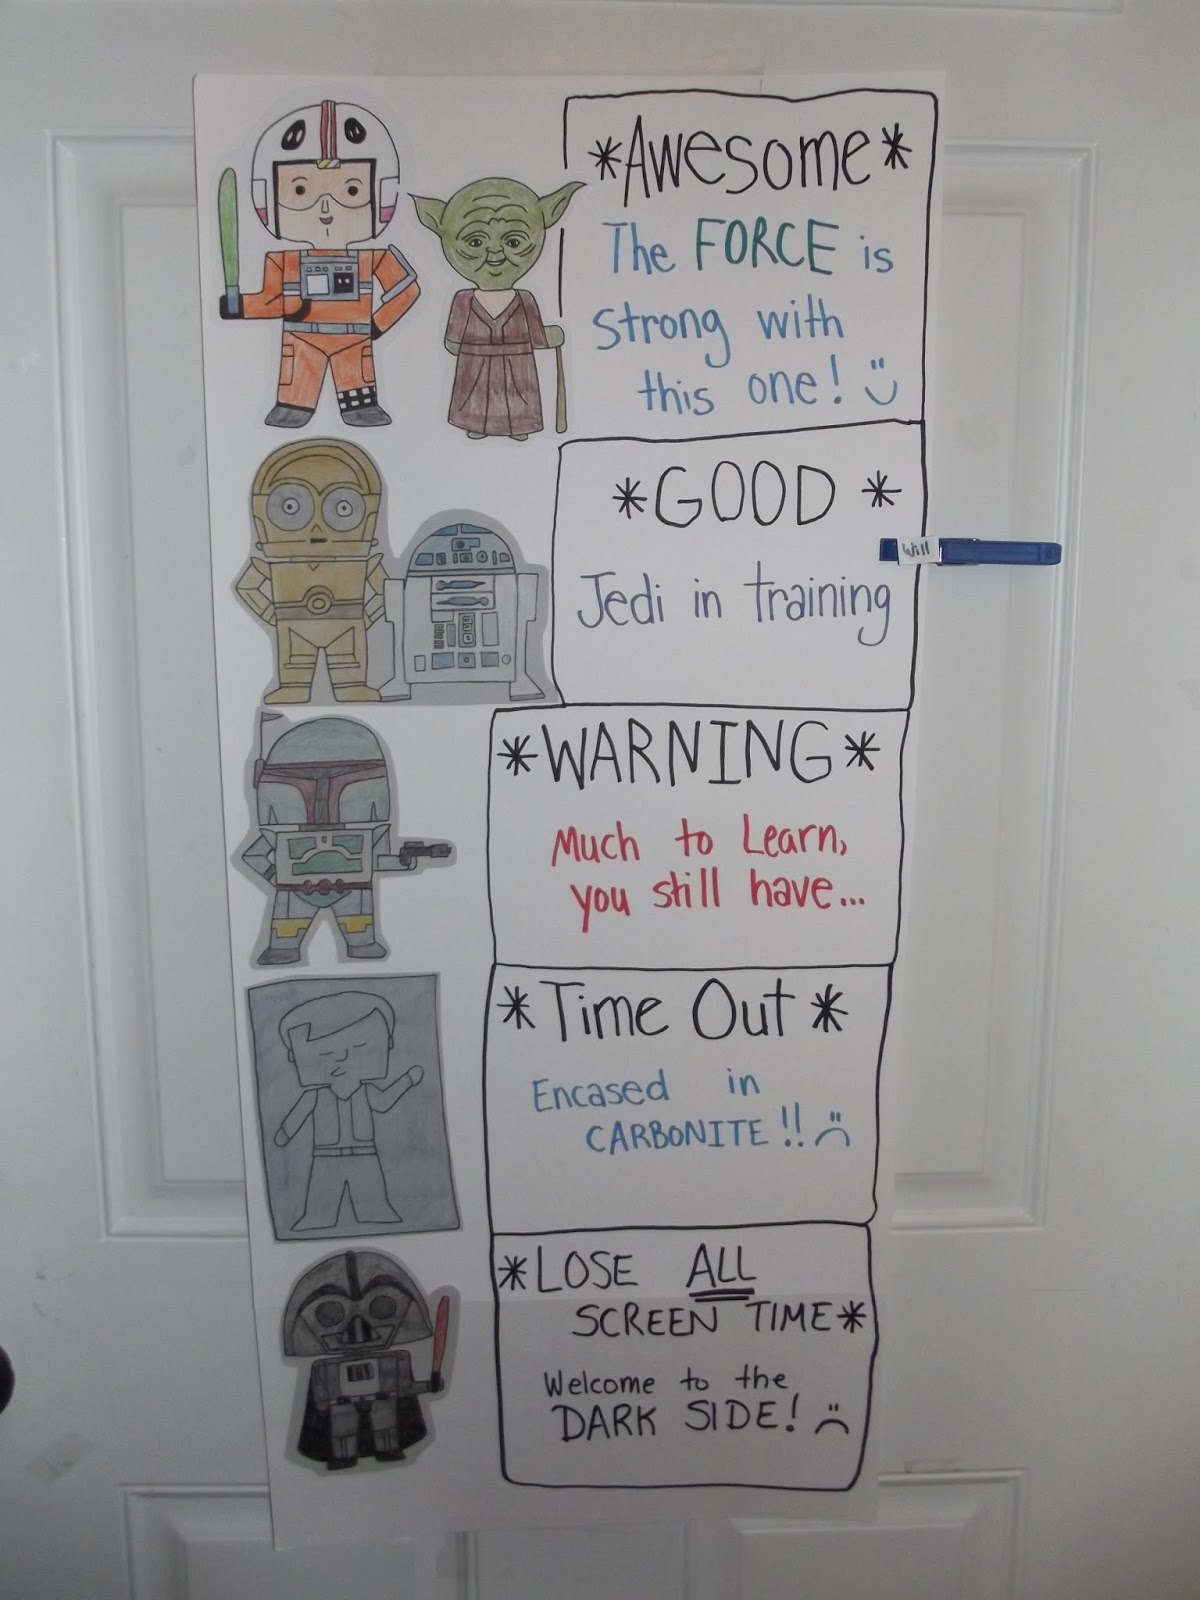 *Awesome*
The FORCE is
strong with
this one!
*GOOD*
Will
Jedi in training
*WARNING*
Much to Learn,
you still have...
*Time Out*
Encased in
CARBONITE!!
*LOSE ALL
SCREEN TIME*
Welcome to the
DARK SIDE!